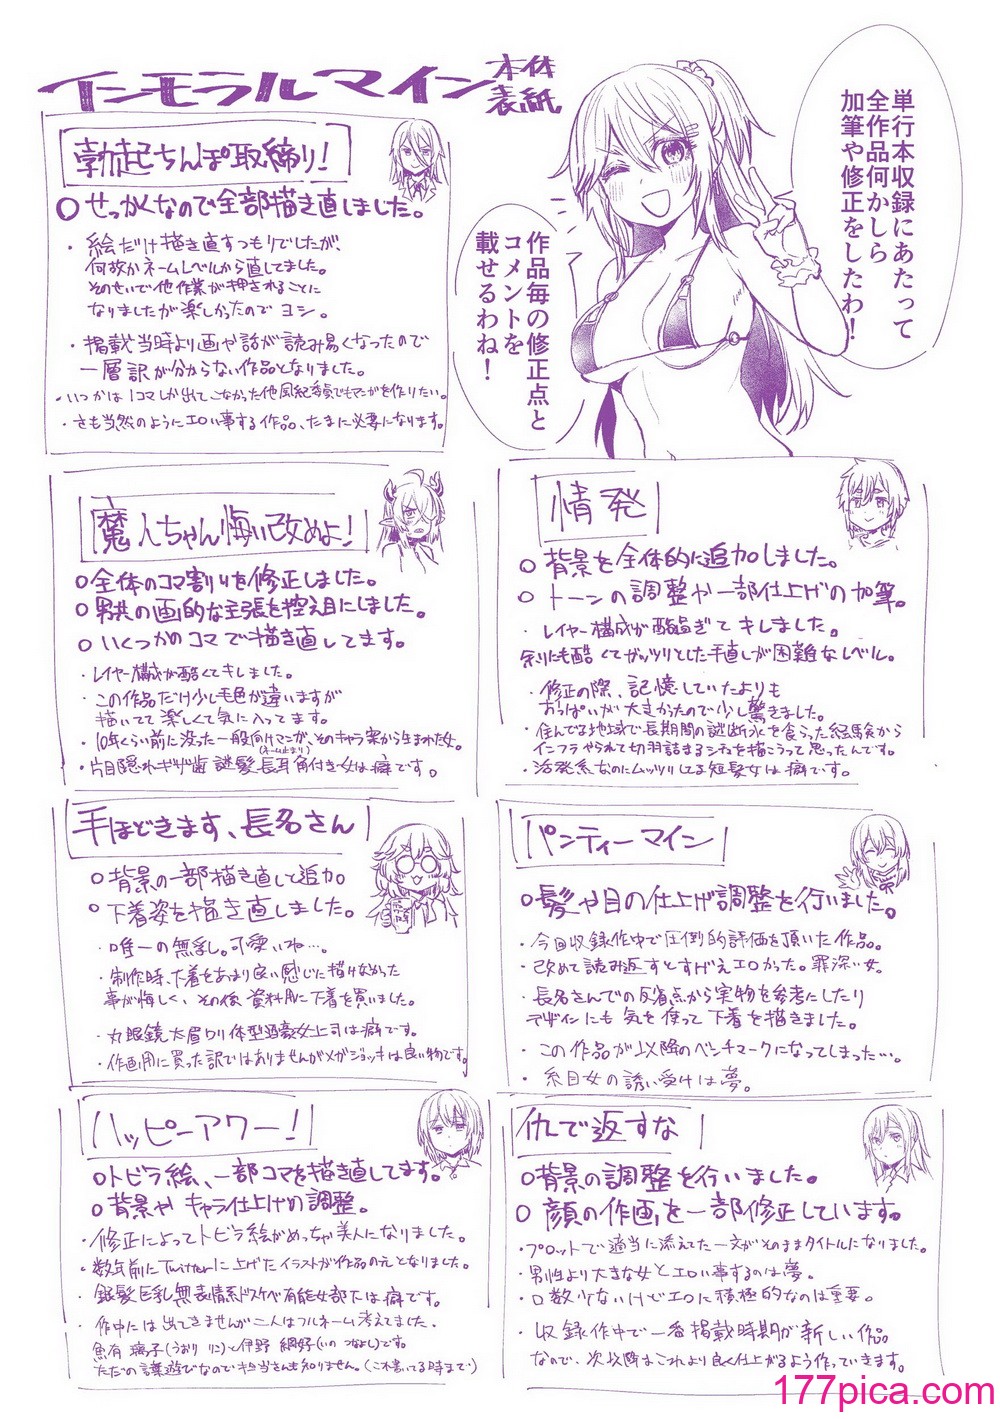 インモラルマイン 本体表紙
単行本収録にあたって
全作品何かしら
加筆や修正をしたわ！
作品毎の修正点と
コメントを
載せるわね！
勃起ちんぽ取締り！
○ せっかくなので全部描き直しました。
・絵だけ描き直すつもりでしたが、
何故かネームレベルから直してました。
そのせいで他作業が押されることに
なりましたが楽しかったので ヨシ。
・掲載当時より画や話が読み易くなったので
一層訳が分からない作品となりました。
・いつかは1コマしか出てこなかった他風紀委員でもマンガを作りたい。
・さも当然のようにエロい事する作品、たまに必要になります。
魔人ちゃん悔い改めよ！
○全体のコマ割りを修正しました。
○男共の画的な主張を控え目にしました。
○いくつかのコマで描き直してます。
・レイヤー構成が酷くてキレました。
・この作品だけ少し毛色が違いますが
描いてて楽しくて気に入ってます。
・10年くらい前に没った一般向けマンガ、そのキャラ案から生まれた女。
(ネーム止まり)
・片目隠れギザ歯謎髪長耳角付き女は癖です。
情発
○ 背景を全体的に追加しました。
○ トーンの調整や一部仕上げの加筆。
・レイヤー構成が酷過ぎてキレました。
余りにも酷くてガッツリとした手直しが困難なレベル。
・修正の際、記憶していたよりも
おっぱいが大きかったので少し驚きました。
・住んでる地域で長期間の謎断水を食らった経験から
インフラやられて切羽詰まるシチュを描こうって思ったんです。
・活発系なのにムッツリしてる短髪女は癖です。
手ほどきます、長名さん
○背景の一部描き直しと追加
○下着姿を描き直しました。
・唯一の無乳。可愛いね…。
・制作時、下着をあまり良い感じに描けなかった
事が悔しく、その後 資料用に下着を買いました。
・丸眼鏡太眉ロリ体型酒豪女上司は癖です。
・作画用に買った訳ではありませんがメガジョッキは良い物です。
パンティーマイン
○髪や目の仕上げ調整を行いました。
・今回収録作中で圧倒的評価を頂いた作品。
・改めて読み返すとすげえエロかった。罪深い女。
・長名さんでの反省点から実物を参考にしたり
デザインにも気を使って下着を描きました。
・この作品が以降のベンチマークになってしまった…。
・糸目女の誘い受けは夢。
ハッピーアワー！
○トビラ絵、一部コマを描き直してます。
○背景や キャラ仕上げの調整。
・修正によってトビラ絵がめっちゃ美人になりました。
・数年前にTwitterに上げたイラストが作品の元となりました。
・銀髪巨乳無表情系ドスケベ有能女部下は癖です。
・作中には出てきませんが二人はフルネーム考えてました。
魚有 璃子(うおり りこ)と伊野 綱好(いの つなよし)です。
ただの言葉遊びなので担当さんも知りません。(これ書いてる時まで)
仇で返すな
○背景の調整を行いました。
○ 顔の作画を一部修正しています。
・プロットで適当に添えてた一文がそのままタイトルになりました。
・男性より大きな女とエロい事するのは夢。
・口数少ないけどエロに積極的なのは重要。
・収録作中で一番掲載時期が新しい作品
なので、次以降はこれより良く仕上がるよう作っていきます。
177pica.com